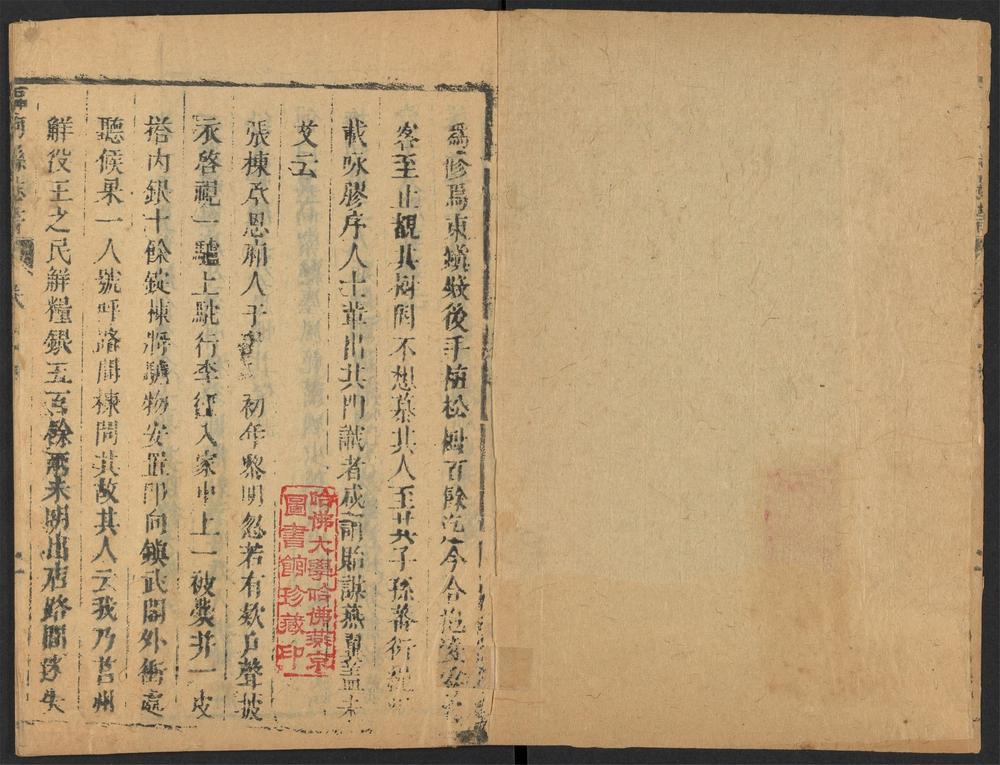 爲修爲東鎮後手植松樹百餘今合抱
客至止覩其樹罔不想慕其人至其子孫蕃衍
載咏膠序人士輩出其門識者咸謂貽謀燕翼盖未
艾云
張棟承恩廟人于初年黎明忽若有欵戶聲披
衣啓視一驢上馱行李經入家中上一被囊并一皮
搭內銀十餘錠棟將驢物安置即向鎮武閣外衝處
聽候果一人號呼路間棟問其故其人云我乃莒州
觧役王之民觧糧銀五百餘兩未明出店路間失
縣志
哈佛大學哈佛燕京
圖書館珍藏印